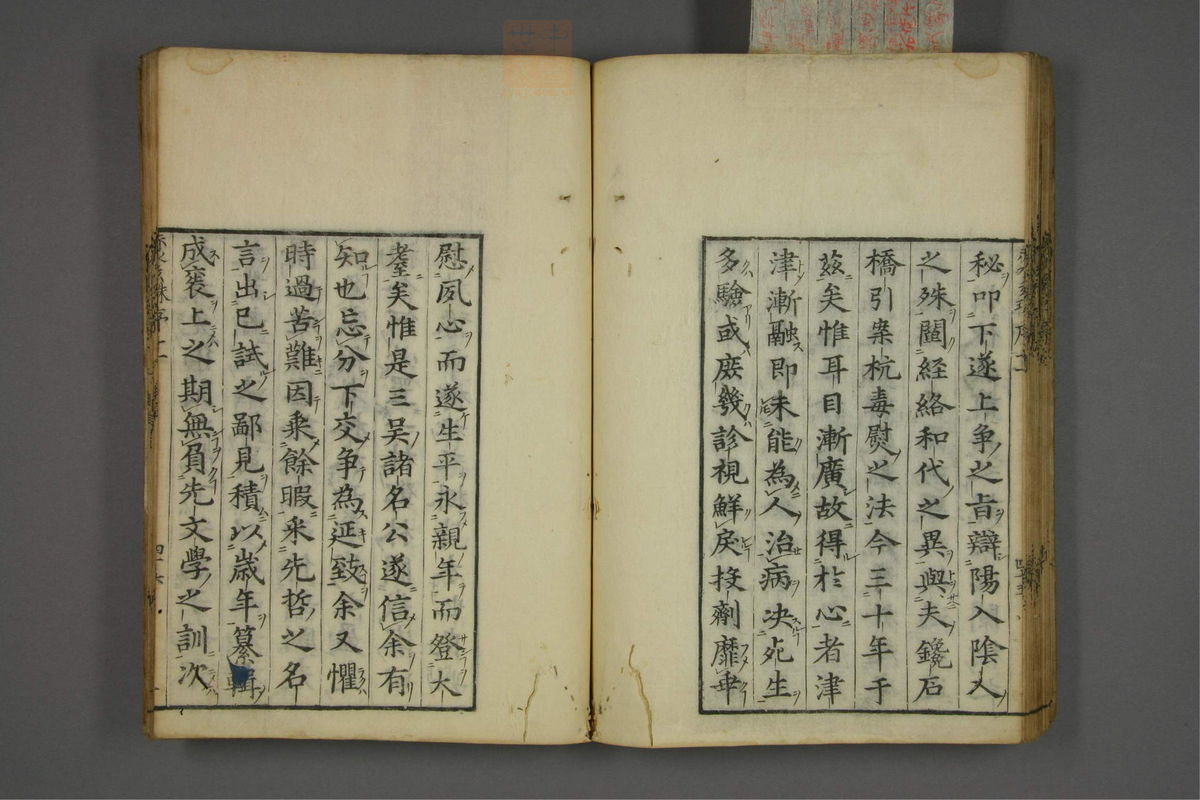 秘叩下遂上争之旨辯陽入陰入
之殊闓経絡和代之異與夫鑱石
橋引案杭毒熨之法今三十年于
茲矣惟耳目漸廣故得於心者津
津漸融即未能為人治病决死生
多驗或庻幾診視鮮戾投劑靡乖
慰夙心而遂生平永親年而登大
耋矣惟是三吴諸名公遂信余有
知也忘分下交争為延致余又懼
時過苦難因乗餘暇采先哲之名
言出已試之鄙見積以歳年纂輯
成褒上之期無負先文學之訓次